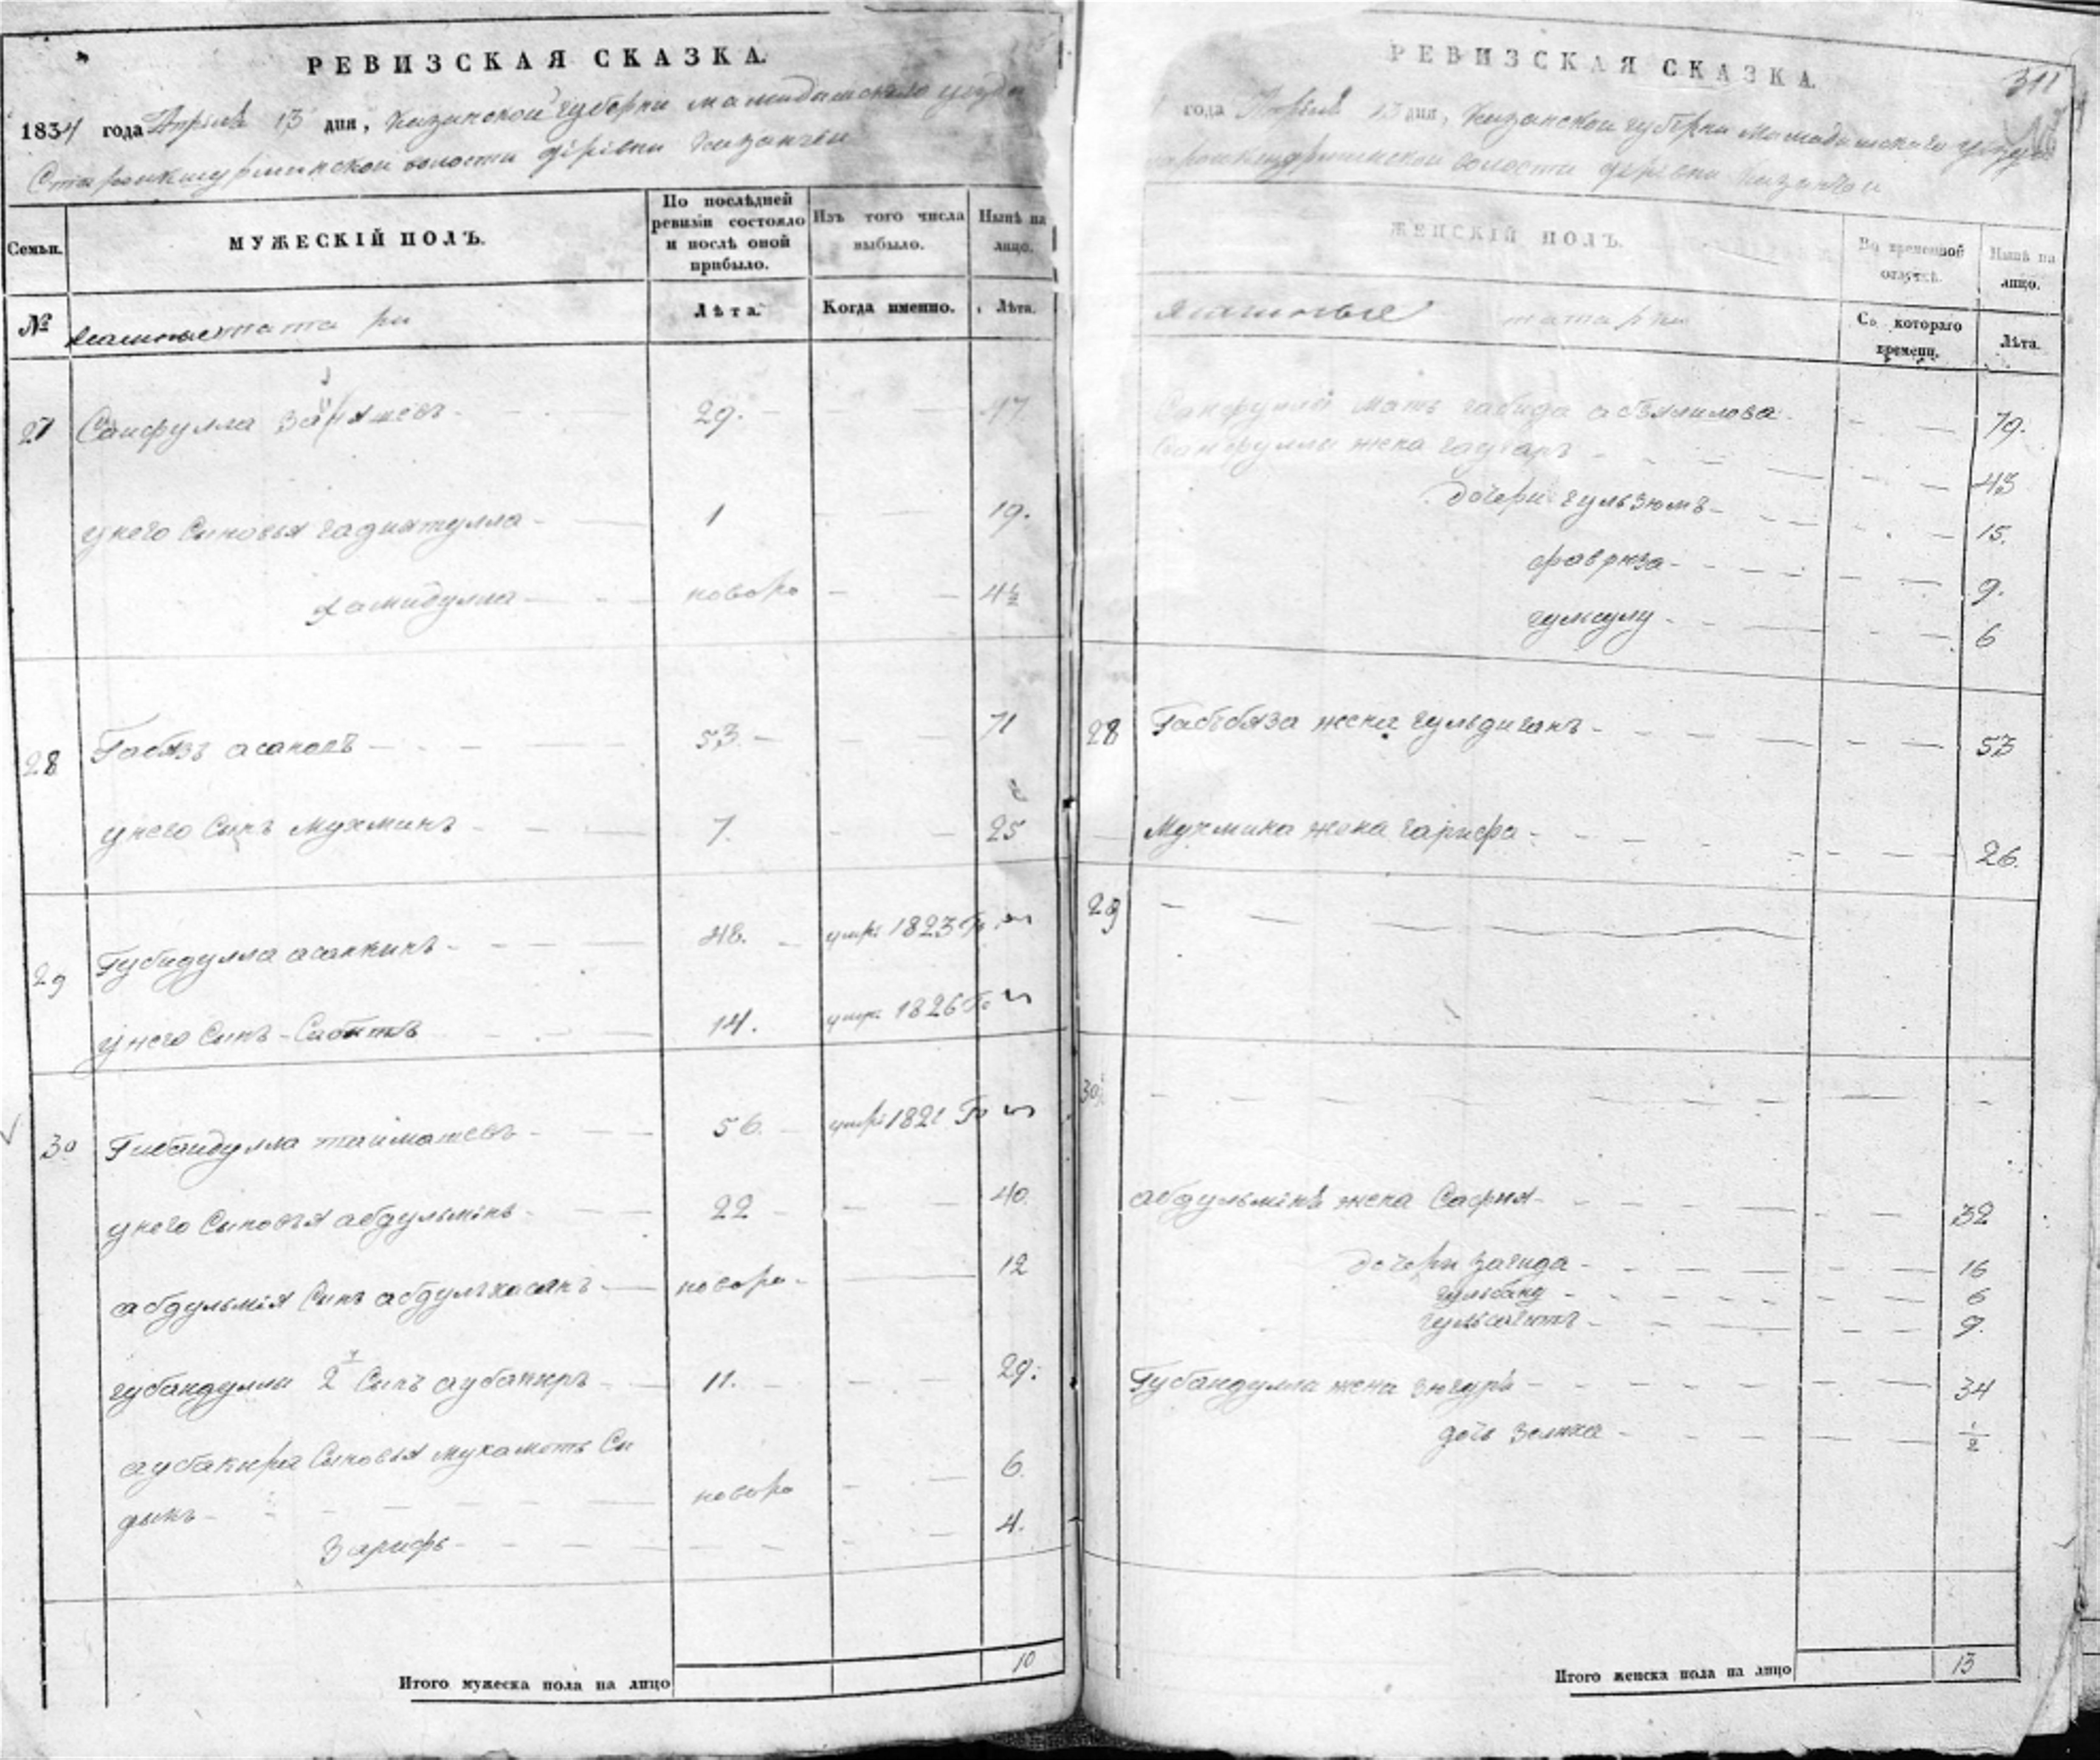 РЕВИЗСКАЯ СКАЗКА.
1834 года Апреля 13 дня, Казанской губерни мамадышскаго уезда
Старокшурминской волости деревни Казанчеи
Семьи.
МУЖЕСКІЙ ПОЛЪ.
По послѣдней ревизіи состояло и послѣ оной прибыло.
Изъ того числа выбыло.
Нынѣ на лицо.
№
ясашные татары
Лѣта.
Когда именно.
Лѣта.
27 Саифулла 29. 47
у него Сыновья гадиятулла 1 19.
хамидулла новоро 4½
28 Габязъ асановъ 53 71
у него Сынъ Мухминъ 7. 25
29 Губидулла асанкинъ 48. умре 1823 Го
у него Сынъ Сабитъ 14. умре 1826 Го
30 тайматевъ 56 умре 1821 Го
у него Сыновья абдульмінь 22 40
абдульмія Сынъ абдулхасанъ новоро 12
губайдуллы 2й Сынъ аубакиръ 11. 29.
аубакира Сыновья мухаметъ Си
дыкъ новоро 6.
Зарифъ 4.
Итого мужеска пола на лицо 10
РЕВИЗСКАЯ СКАЗКА.
311
года Апреля 13 дня, Казанской губерни Мамадышскаго уезда
волости деревни Казанчеи
ЖЕНСКІЙ ПОЛЪ.
Во временной отлучкѣ.
Нынѣ на лицо.
ясашные татарки
Съ котораго времени.
Лѣта.
Саифуллы мать габида абзялилова 79.
Саифуллы жена гаугаръ 43
дочери гульзюмъ 15.
фавриза 9.
гульсулу 6
28 Габъбяза жена гульдиганъ 53
Мухмина жена гарифа 26.
29
30
абдульмінѣ жена Сафия 32
дочери загида 16
гульбану 6
9.
Губайдулла жена зюгура 34
дочь ½
Итого женска пола на лицо 13